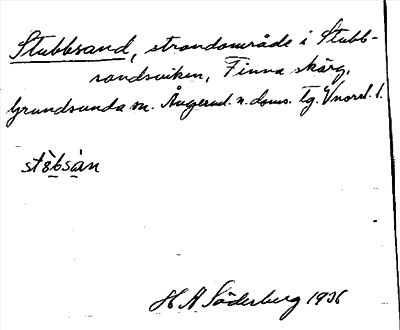 Stubbsand, strandområde i Stubb-
sandsviken, Finna skärg,
Grundsunda sn. Ångerml. n. doms. Tg. Vnorrl. l.
stòbsàn
H A Söderberg 1936